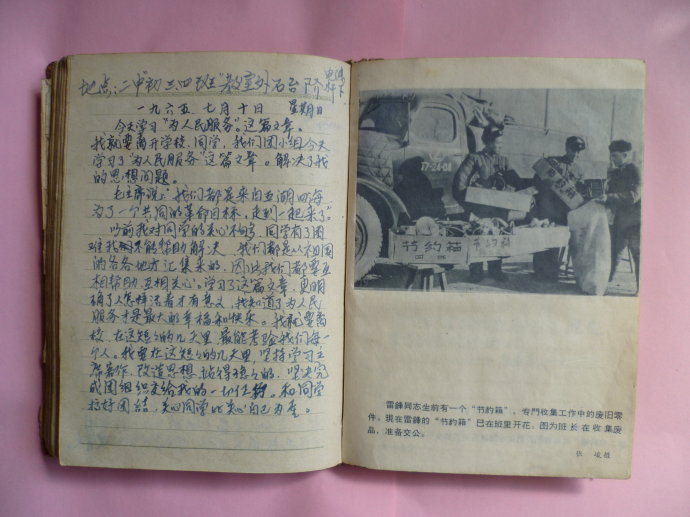 地点：二中初三四班"教室外石台阶
一九六五、七月十日 星期日
今天学习"为人民服务"。这篇文章。
我就要离开学校、同学、我们团小组今天
学习了"为人民服务"这篇文章。解决了我
的思想问题。
毛主席说："我们都是来自五湖四海
为了一个共同的革命目标，走到一起来了"。
以前我对同学的关心不够，同学有了困
难我不能帮助解决、我们都是从祖国
的各各地方汇集来的，因此我们都要互
相帮助、互相关心。学习了这篇文章，更明
确了人怎样活着才有意义，我知道了为人民
服务才是最大的幸福和快乐。我就要离
校、在这短短的几天里、最能考验我们每一
个人。我要在这短短的几天里，坚持学习主
席著作、改造思想、站得稳的、坚决完
成团组织交给我的一切任务。和同学
搞好团结、关心同学比关心自己为重。
77-24-01
节約箱
节约箱
节約箱
四班
雷鋒同志生前有一个"节約箱"，专門收集工作中的废旧零
件。現在雷鋒的"节約箱"已在班里开花，图为班长在收集废
品，准备交公。
张 峻摄